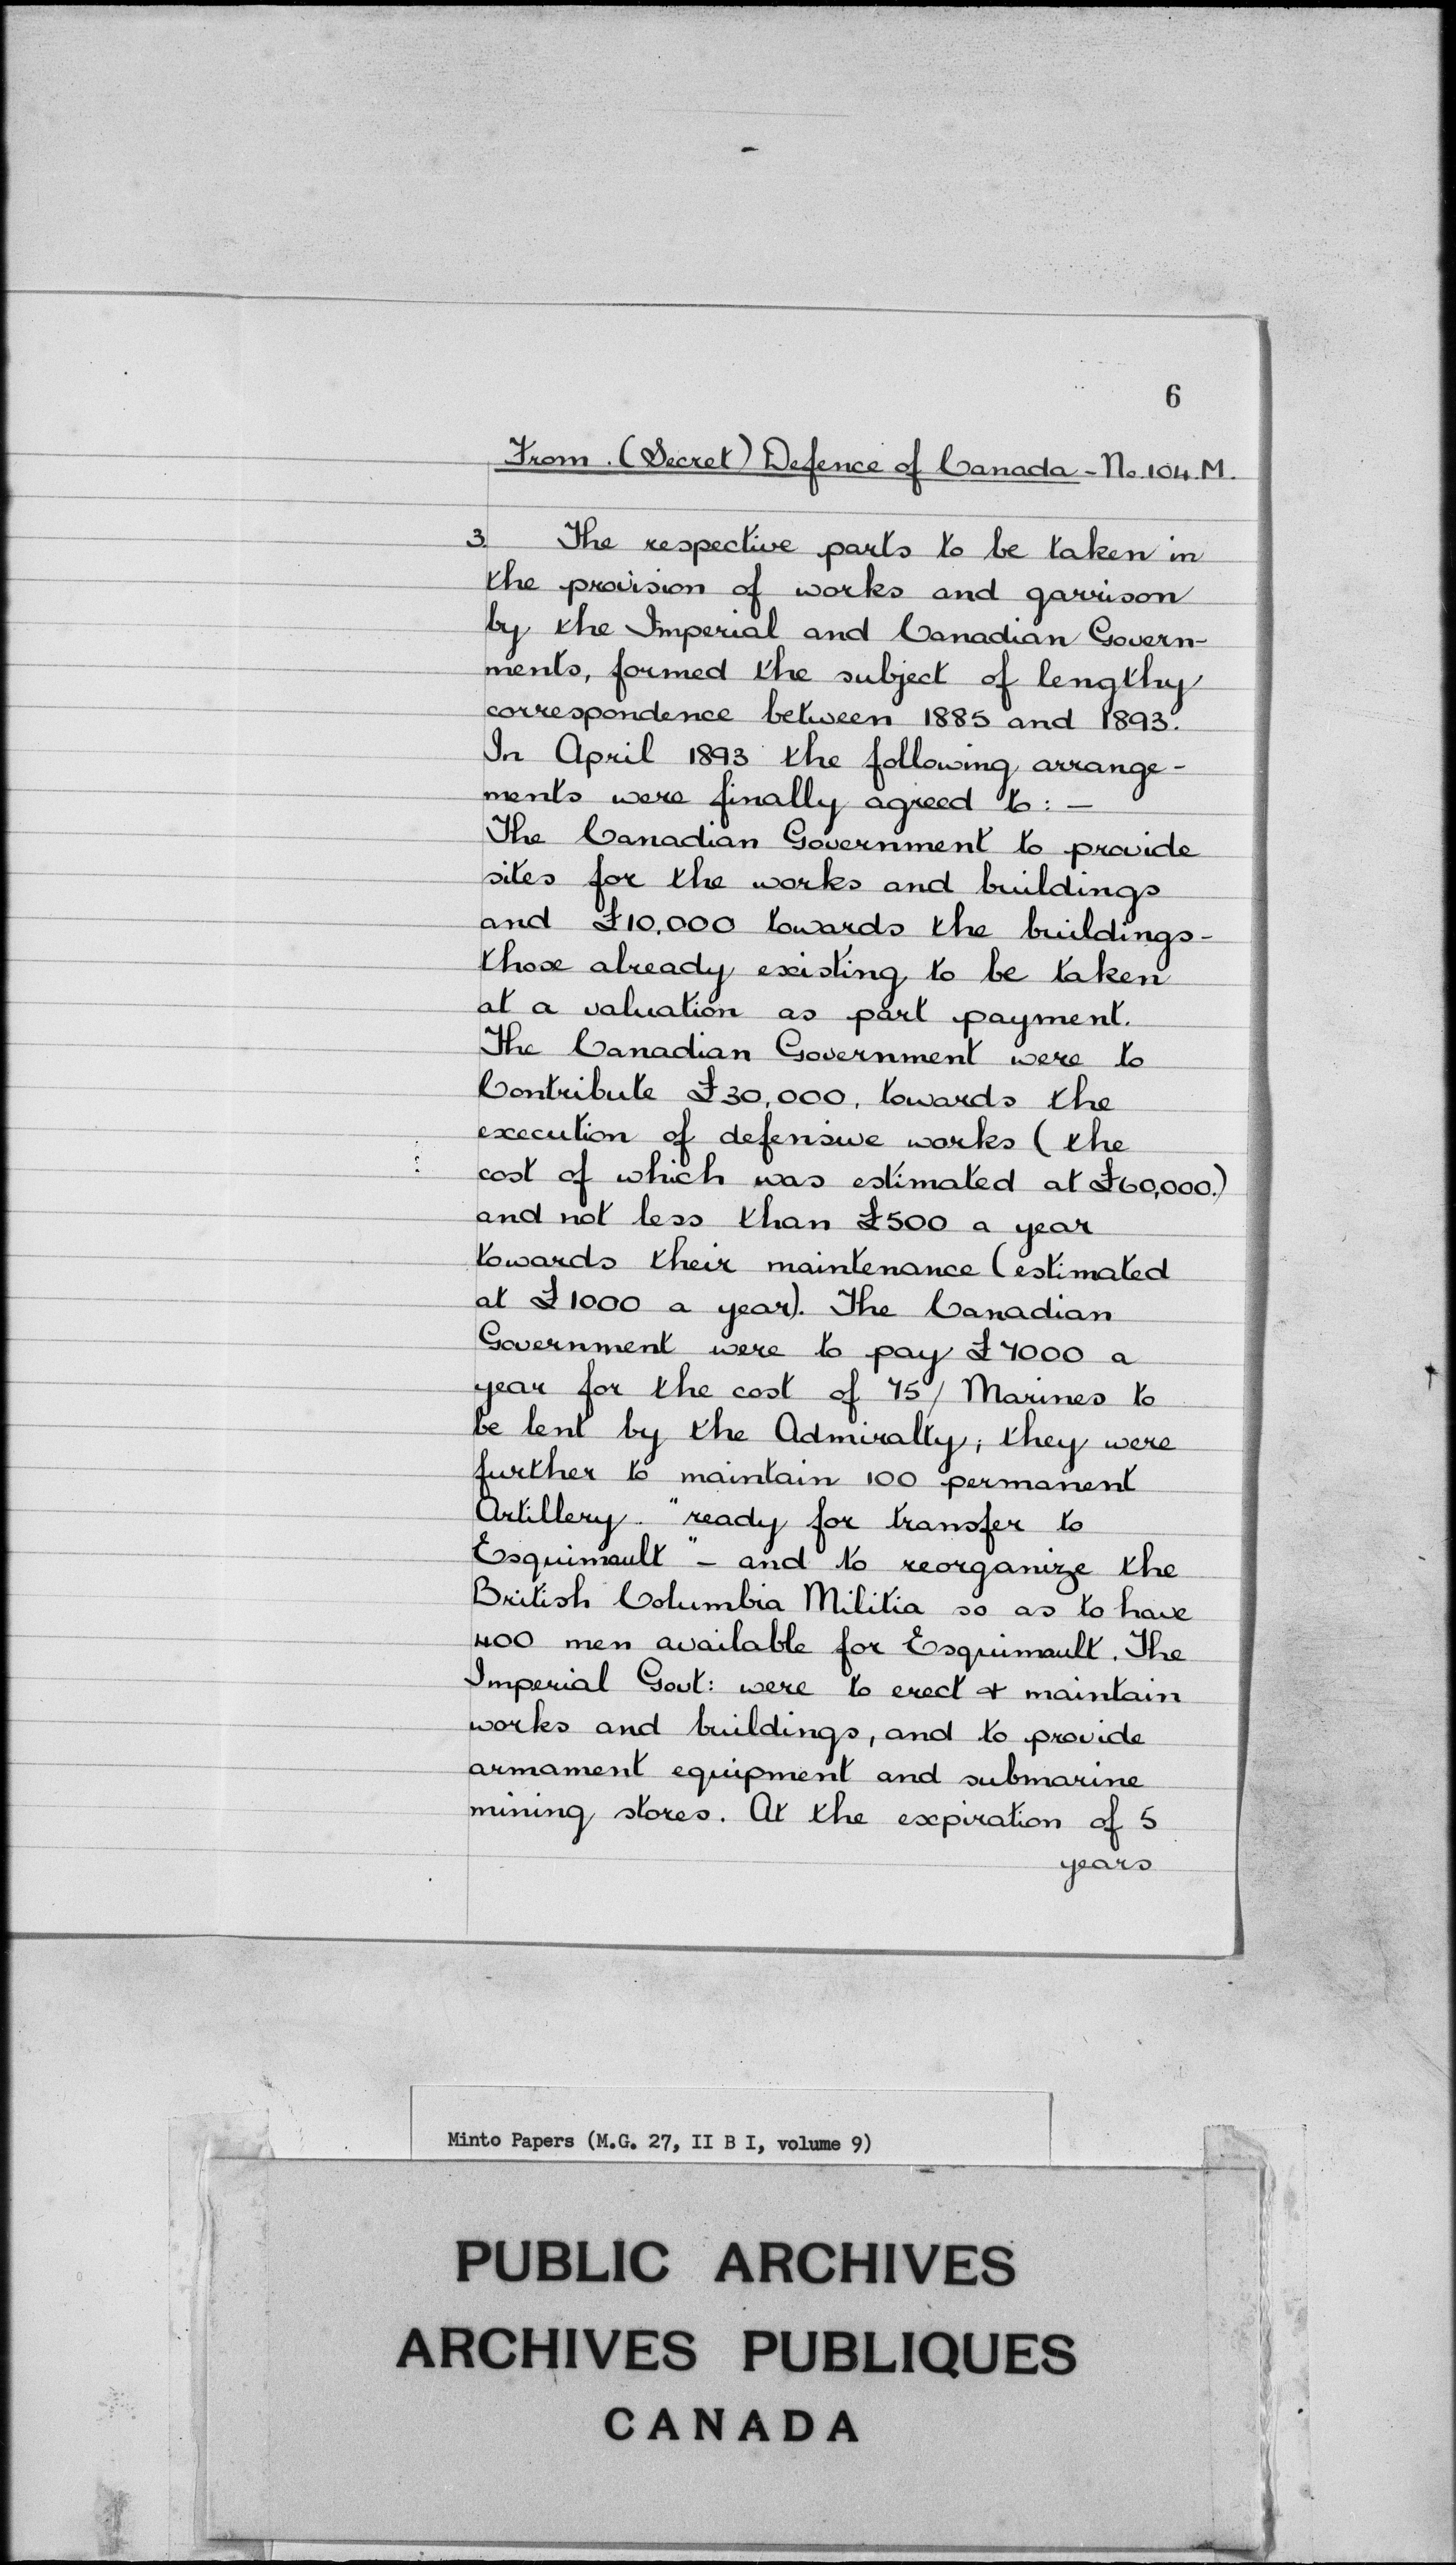 6
From. (Secret) Defence of Canada - No. 104. M.
3. The respective parts to be taken in
the provision of works and garrison
by the Imperial and Canadian Govern-
ments, formed the subject of lengthy
correspondence between 1885 and 1893.
In April 1893 the following arrange-
ments were finally agreed to: —
The Canadian Government to provide
sites for the works and buildings
and £10,000 towards the buildings -
those already existing to be taken
at a valuation as part payment.
The Canadian Government were to
Contribute £30,000, towards the
execution of defensive works (the
cost of which was estimated at £60,000.)
and not less than £500 a year
towards their maintenance (estimated
at £1000 a year). The Canadian
Government were to pay £7000 a
year for the cost of 75/ Marines to
be lent by the Admiralty; they were
further to maintain 100 permanent
Artillery. "ready for transfer to
Esquimault" - and to reorganize the
British Columbia Militia so as to have
400 men available for Esquimault. The
Imperial Govt: were to erect & maintain
works and buildings, and to provide
armament equipment and submarine
mining stores. At the expiration of 5
years
Minto Papers (M.G. 27, II B I, volume 9)
PUBLIC ARCHIVES
ARCHIVES PUBLIQUES
CANADA